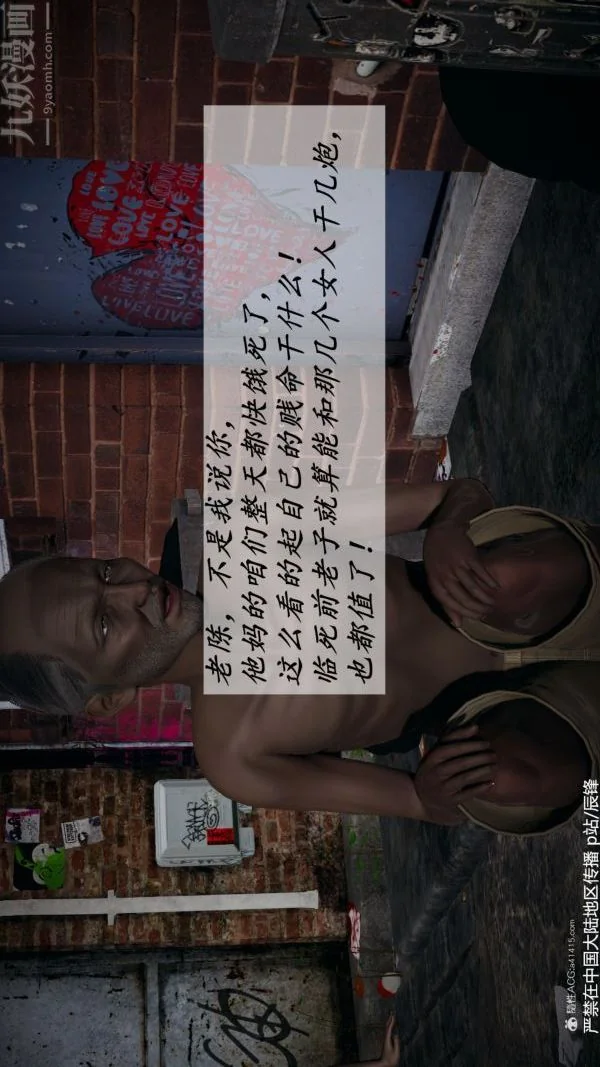 老陈，不是我说你，
他妈的咱们整天都快饿死了，
这么看的起自己的贱命干什么！
临死前老子就算能和那几个女人干几炮，
也都值了！
九妖漫画
9yaomh.com
LOVE
LOVE
LOVE
LOVE
LOVE
LOVELOVE
隨性ACG:a41415.com
严禁在中国大陆地区传播 p站/辰锋